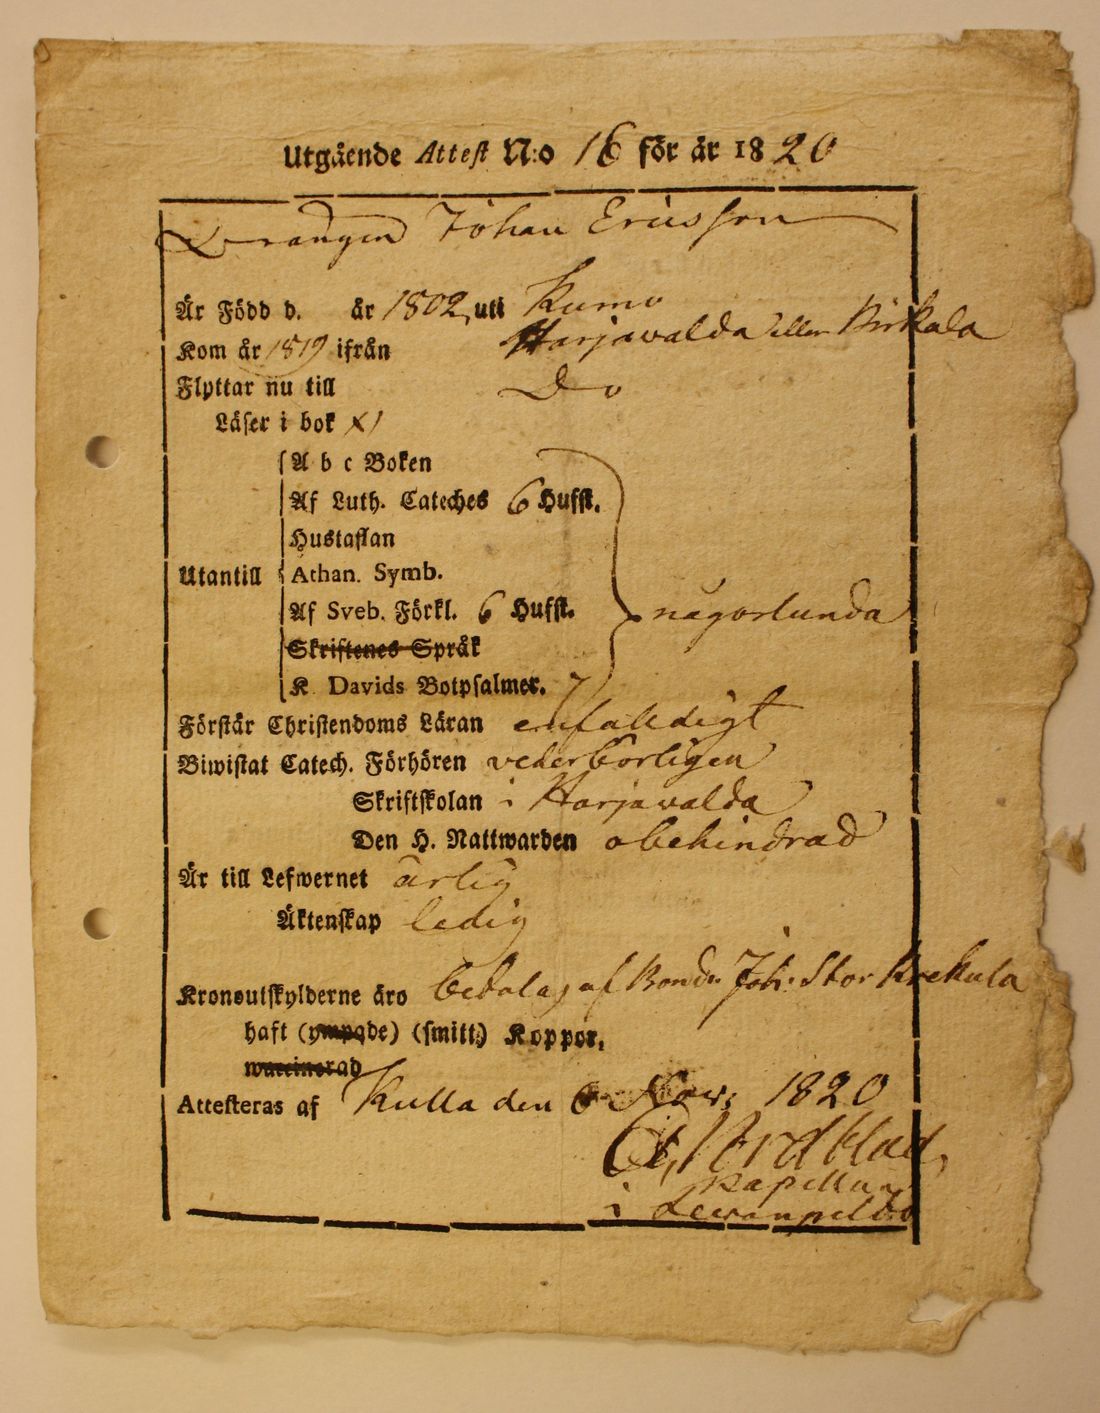 Utgående Attest N:o 16 för år 1820
Drängen Johan Ericsson
Är Född d. år 1802, uti Kumo
Kom år 1819 ifrån Harjavalda eller Birkala
Flyttar nu till Do
Läser i bok x/
A b c Boken
Af Luth. Cateches 6 Hufst.
Hustaflan
Utantill Athan. Symb.
Af Sveb. Förkl. 6 Hufst. någorlunda
Skriftenes Språk
K. Davids Botpsalmer.
Förstår Christendoms Läran enfalldigt
Biwistat Catech. Förhören vederbörligen
Skriftskolan i Harjavalda
Den H. Nattwarden obehindrad
Är till Lefwernet ärlig
Äktenskap ledig
Kronoutskylderne äro betalas af Bonden Joh: Stor Krekula
haft (ympade) (smitt:) Koppor.
waccinerad
Attesteras af Kulla den 6 Nov: 1820
Nordblad,
Kapellan
i